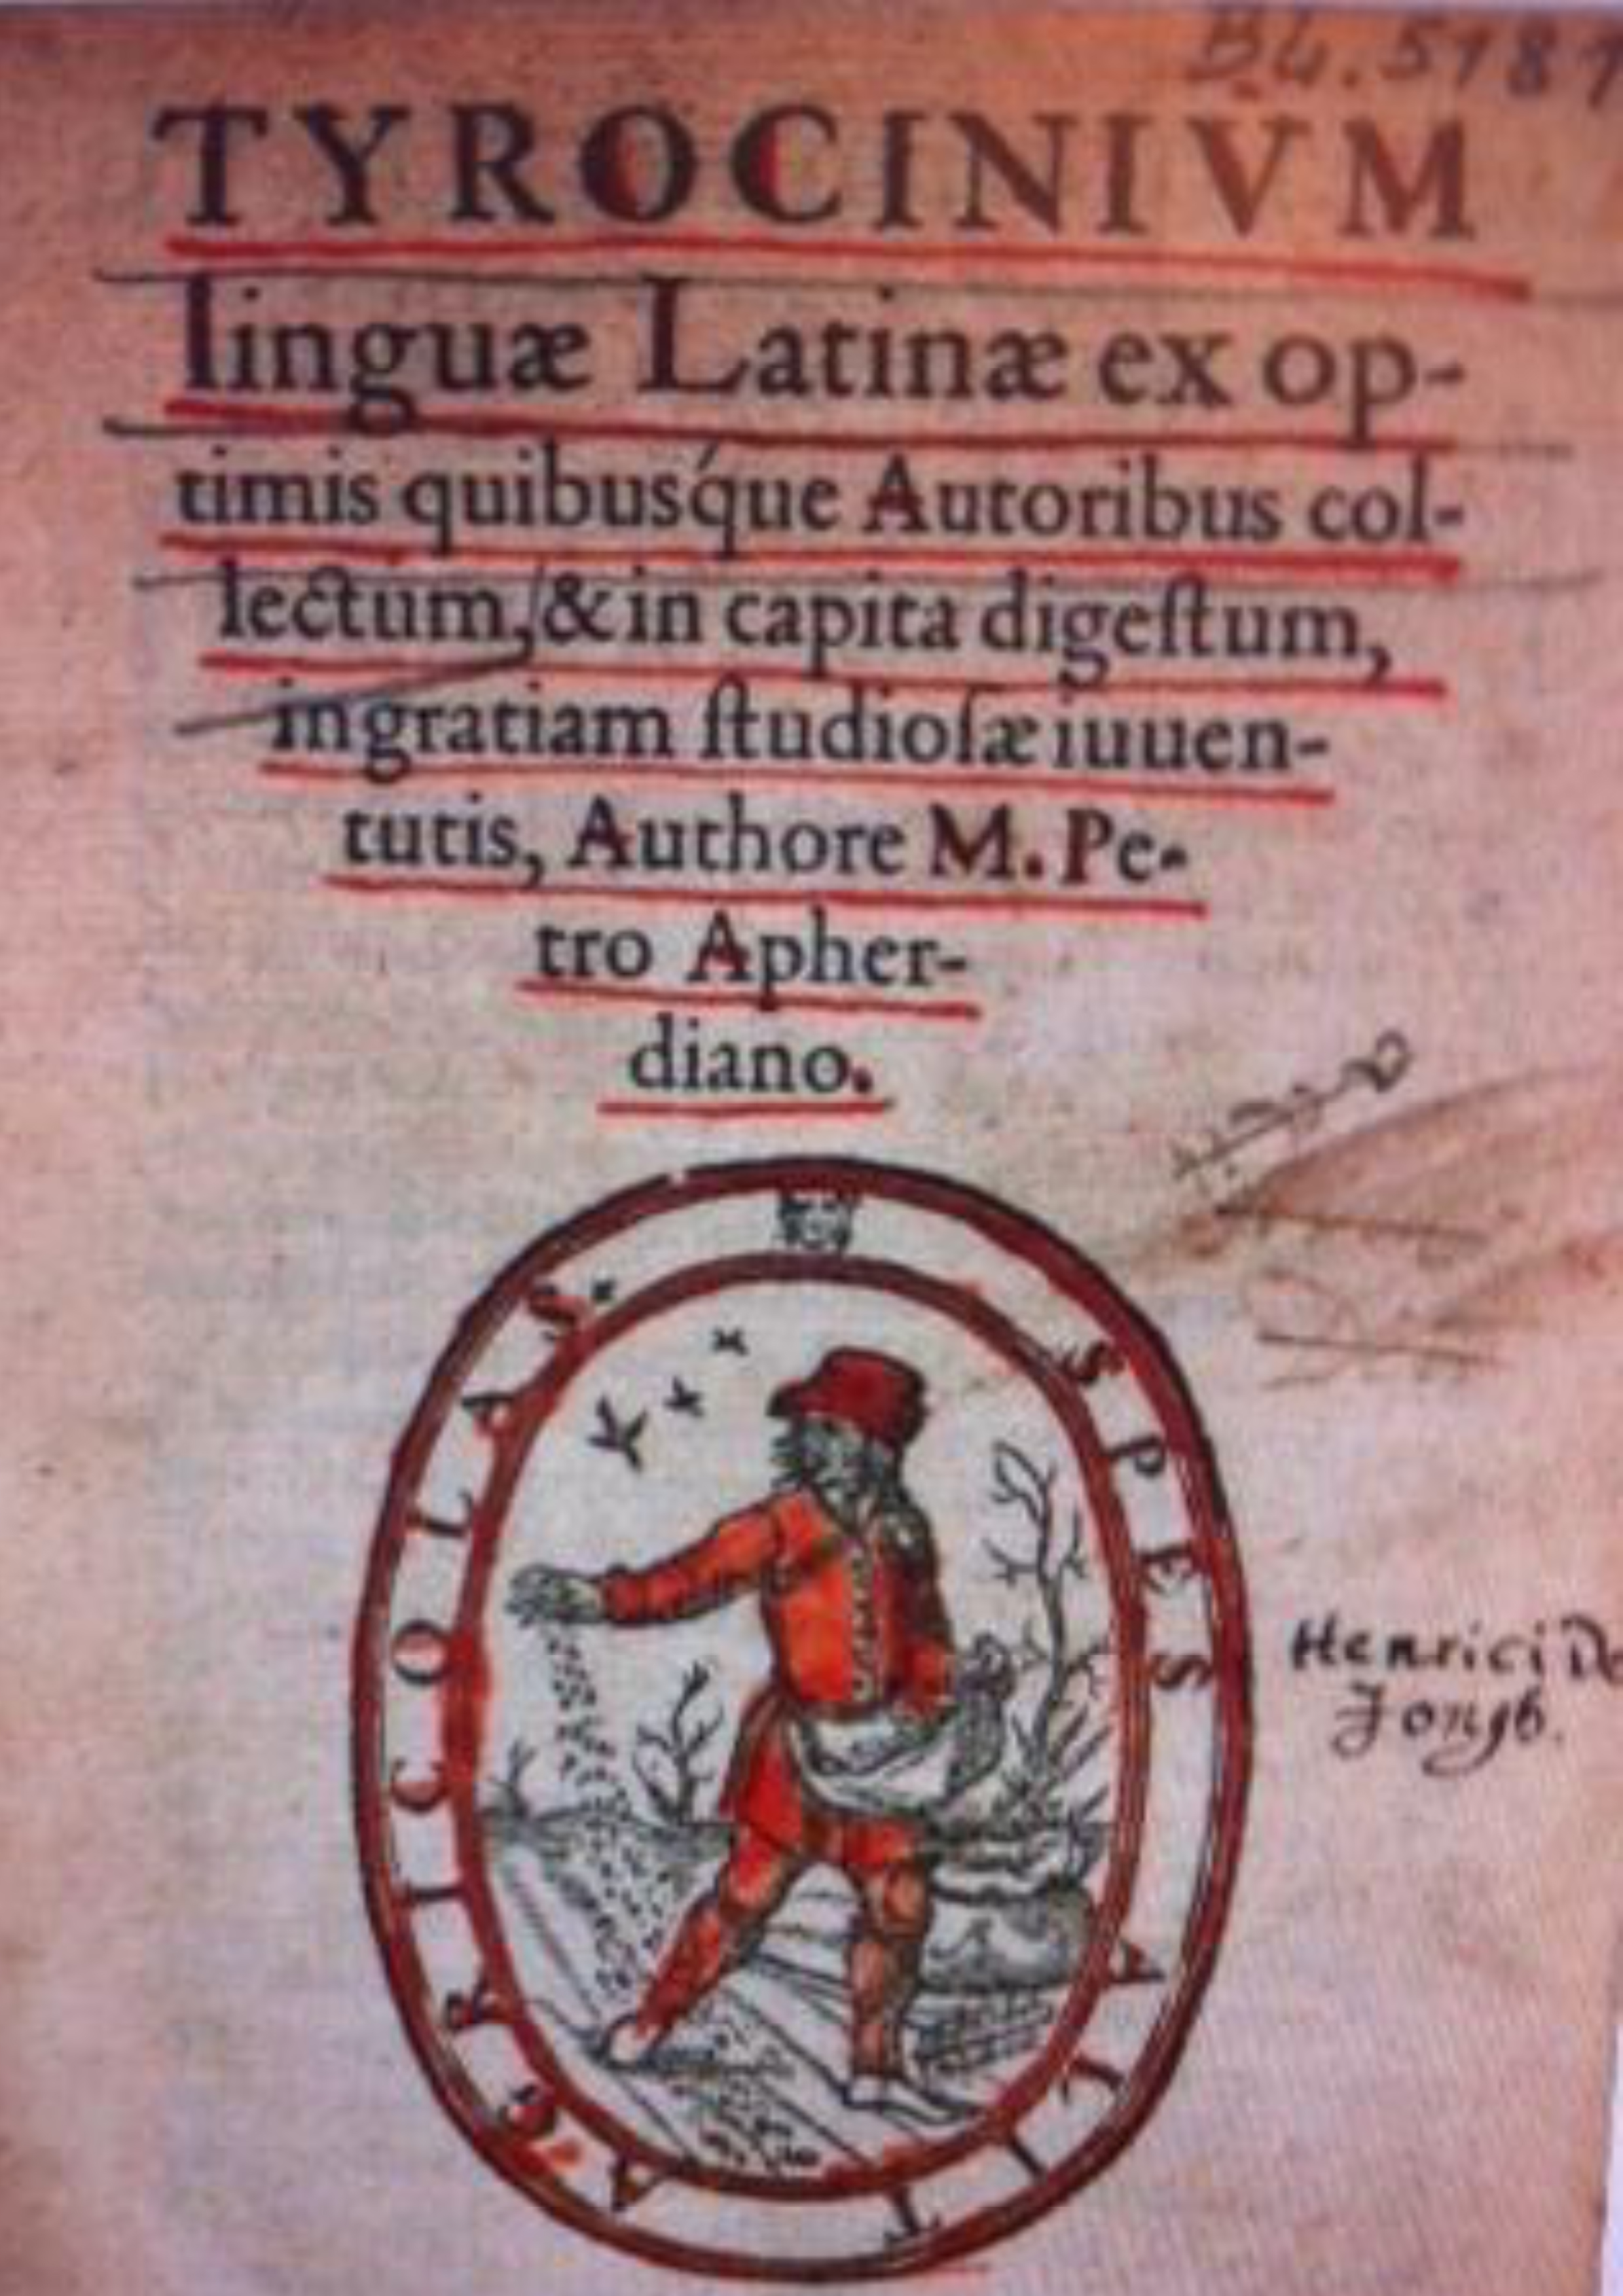 B4.5189
TYROCINIVM
linguæ Latinæ ex op-
timis quibusq́ue Autoribus col-
lectum, & in capita digeſtum,
in gratiam ſtudioſæ iuuen-
tutis, Authore M. Pe-
tro Apher-
diano.
SPES ALIT AGRICOLAS.
Henrici De
Jongh.